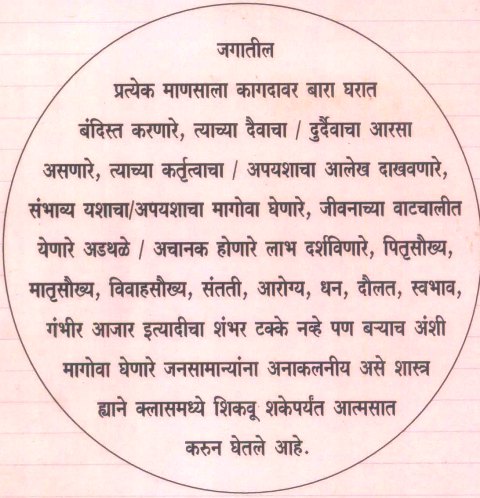 जगातील
प्रत्येक माणसाला कागदावर बारा घरात
बंदिस्त करणारे, त्याच्या दैवाचा / दुर्दैवाचा आरसा
असणारे, त्याच्या कर्तृत्वाचा / अपयशाचा आलेख दाखवणारे,
संभाव्य यशाचा/अपयशाचा मागोवा घेणारे, जीवनाच्या वाटचालीत
येणारे अडथळे / अचानक होणारे लाभ दर्शविणारे, पितृसौख्य,
मातृसौख्य, विवाहसौख्य, संतती, आरोग्य, धन, दौलत, स्वभाव,
गंभीर आजार इत्यादीचा शंभर टक्के नव्हे पण बऱ्याच अंशी
मागोवा घेणारे जनसामान्यांना अनाकलनीय असे शास्त्र
ह्याने क्लासमध्ये शिकवू शकेपर्यंत आत्मसात
करुन घेतले आहे.